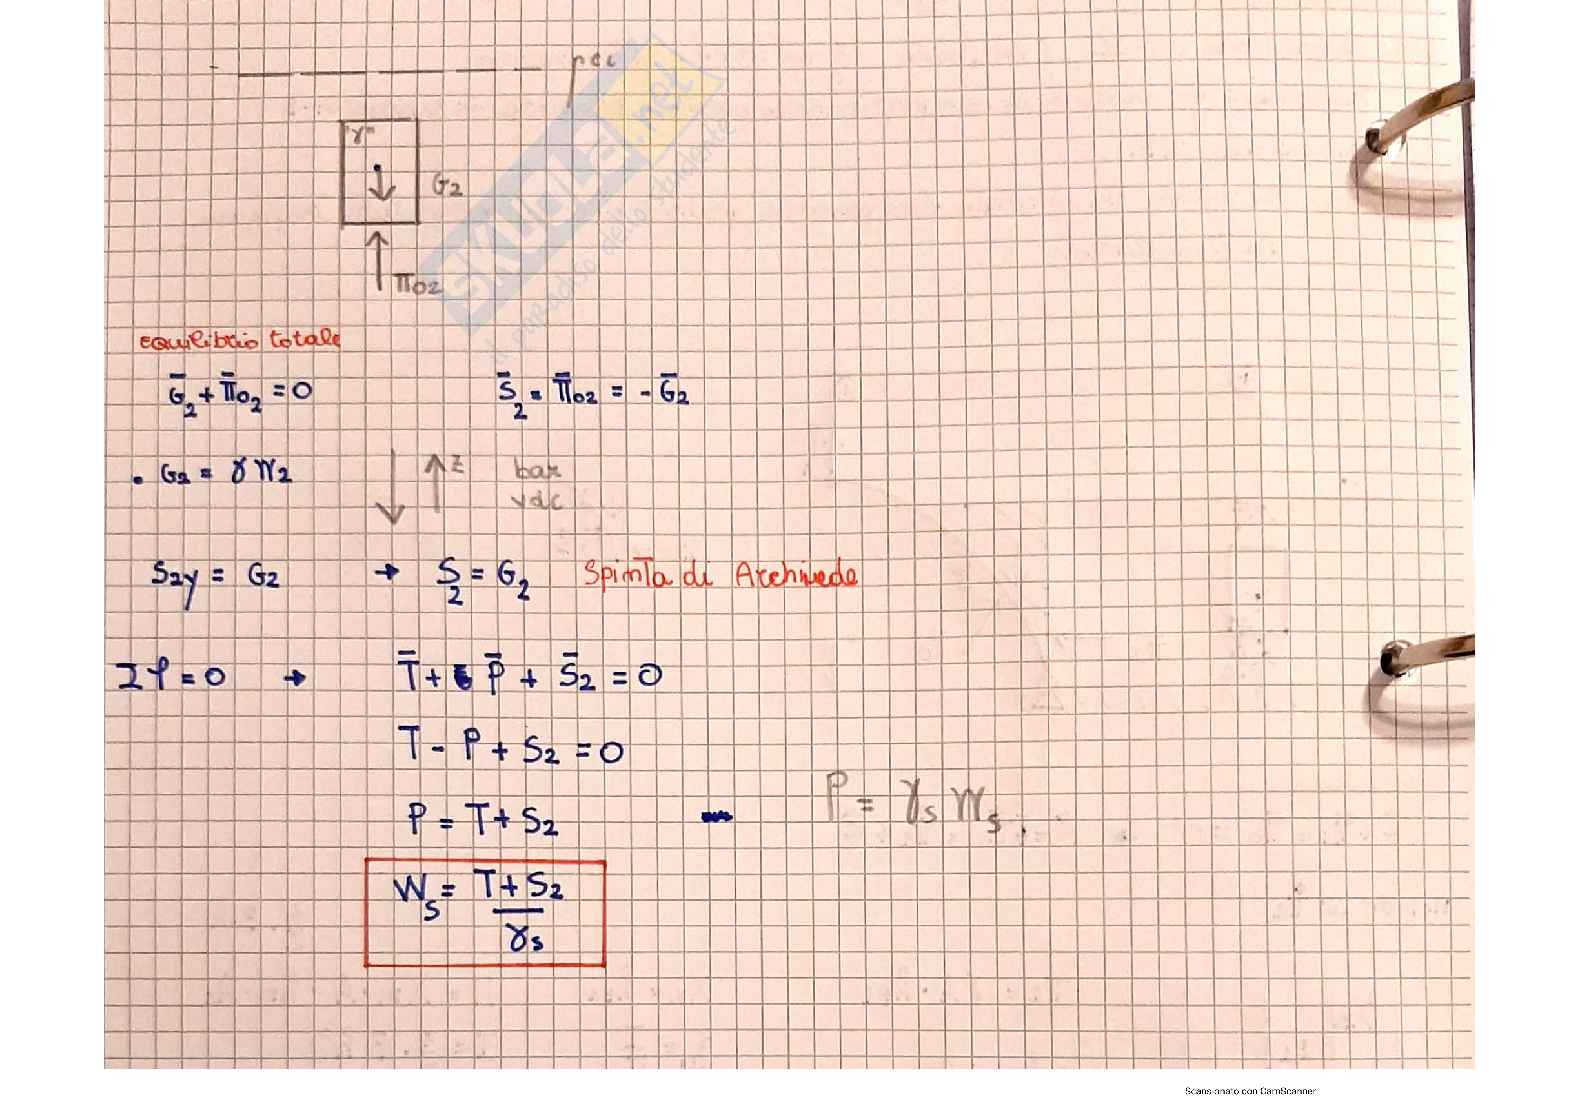 pci
"γ"
G2
Π02
Equilibrio totale
Ḡ2 + Π̄02 = 0    S̄2 = Π̄02 = - Ḡ2
• G2 = γ W2    z    bar
vdc
S2y = G2 → S2 = G2 Spinta di Archimede
Σf = 0 → T̄ + P̄ + S̄2 = 0
T - P + S2 = 0
P = T + S2    P = γs Ws
Ws = T + S2 / γs
SKUOLA.net
il paradiso dello studente
Scansionato con CamScanner